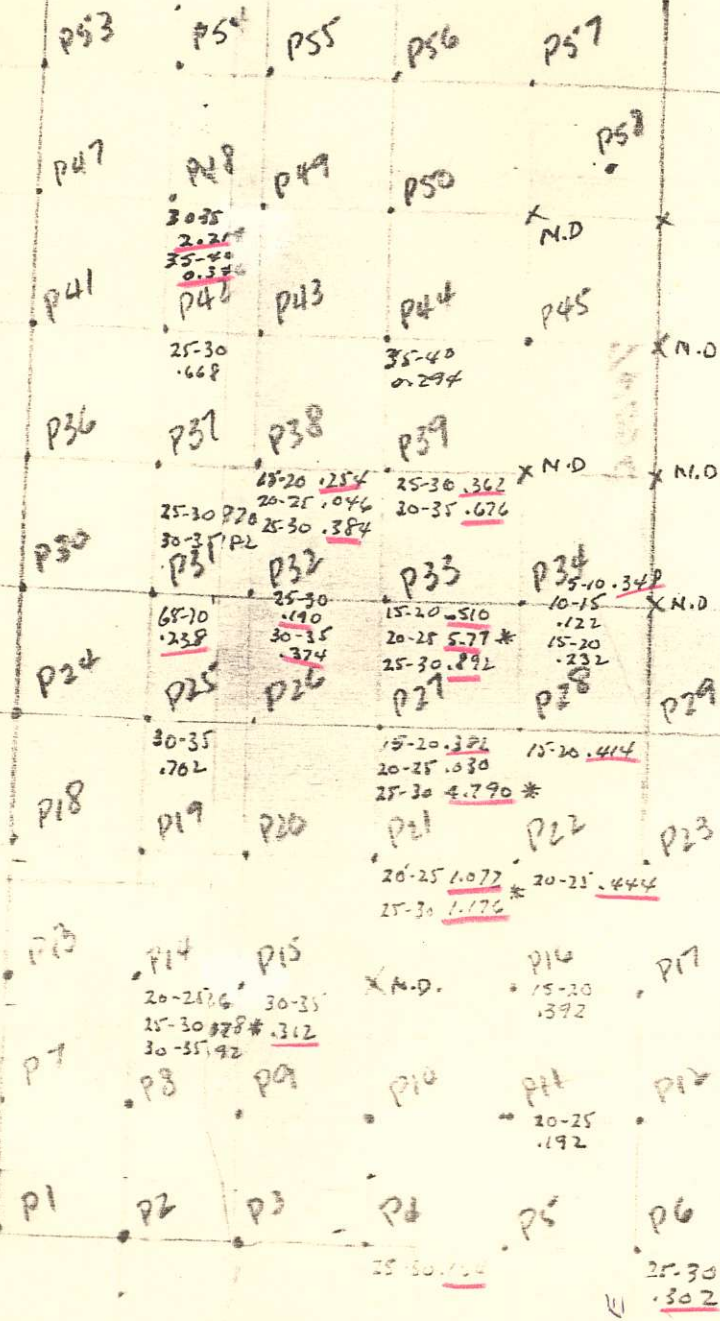 P53 P54 P55 P56 P57
P58
P47 P48 P49 P50
30-35
2.21
N.D
35-40
P41 P42 P43 P44 P45
25-30
.668
35-40
0.294
N.D
P36 P37 P38 P39
.254
20-25 .046
25-30 .384
25-30 .362
30-35 .676
N.D
N.D
25-30
P30 P31 P32 P33 P34
5-10 .348
10-15
.122
15-20
.232
N.D
.238
25-30
.190
30-35
.374
15-20 .510
20-25 5.77 *
25-30 .892
P24 P25 P26 P27 P28 P29
30-35
.702
15-20 .382
20-25 .030
25-30 4.790 *
15-20 .414
P18 P19 P20 P21 P22 P23
20-25 1.077
25-30 1.176
*
20-25 .444
P13 P14 P15 P16 P17
20-25
25-30
30-35
*
30-35
.312
N.D.
15-20
.392
P7 P8 P9 P10 P11 P12
20-25
.192
P1 P2 P3 P4 P5 P6
25-30
25-30
.302